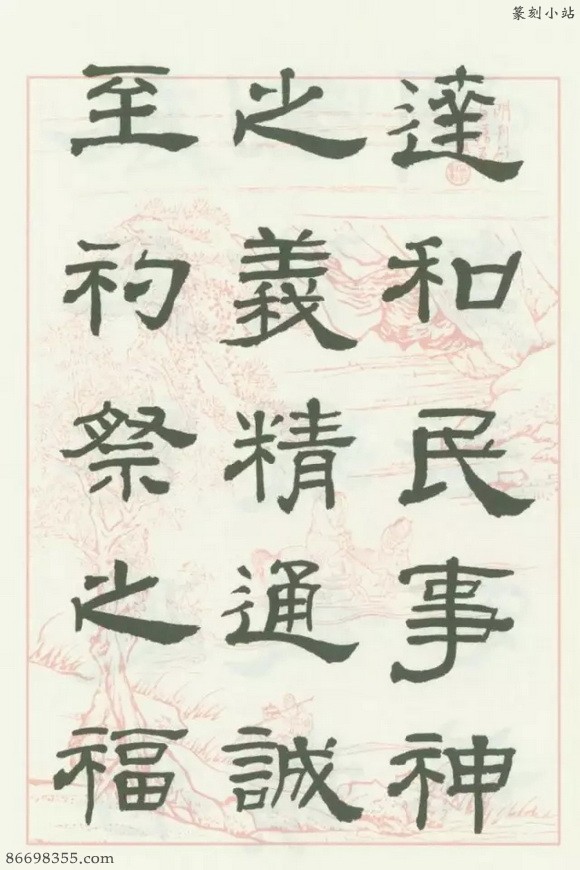 篆刻小站
達和民事神
之義精通誠
至祠祭之福
86698355.com